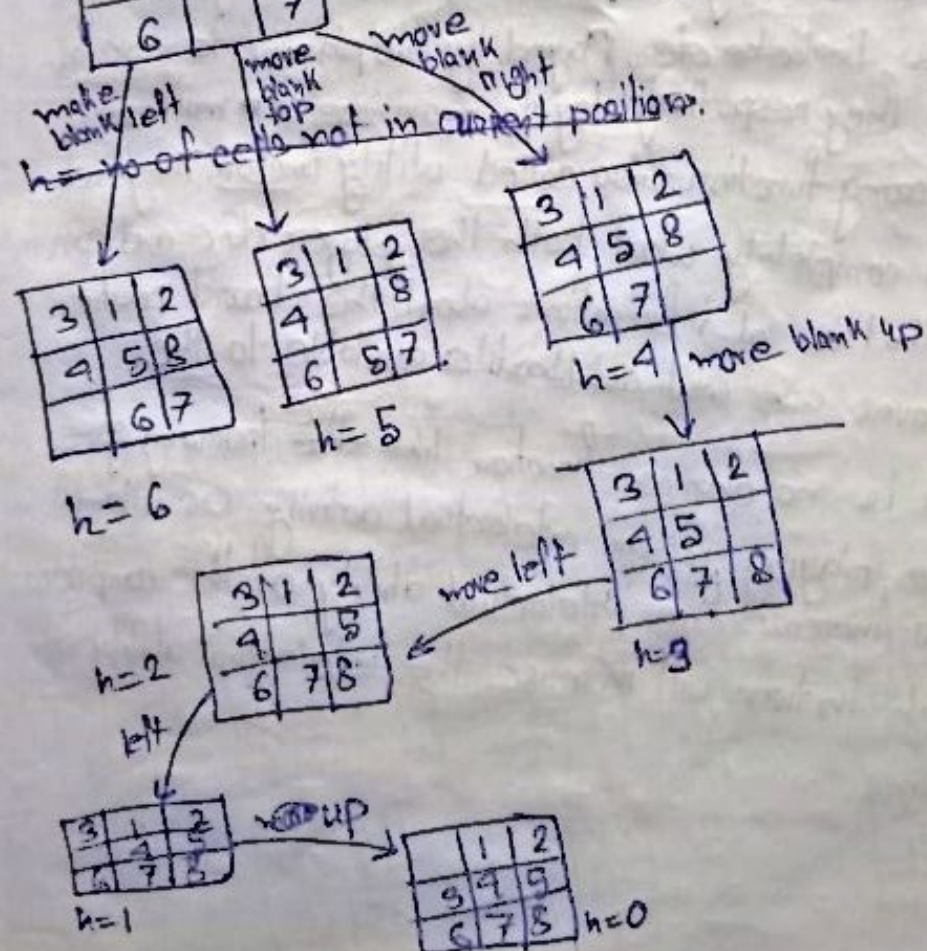 6 7
make blank left
move blank top
move blank right
h= no of cells not in current position.
3 1 2
4 5 8
6 7
h=6
3 1 2
4 8
6 5 7
h=5
3 1 2
4 5 8
6 7
h=4
move blank up
3 1 2
4 5
6 7 8
h=3
move left
3 1 2
4 5
6 7 8
h=2
left
3 1 2
4 5
6 7 8
h=1
up
1 2
3 4 5
6 7 8
h=0